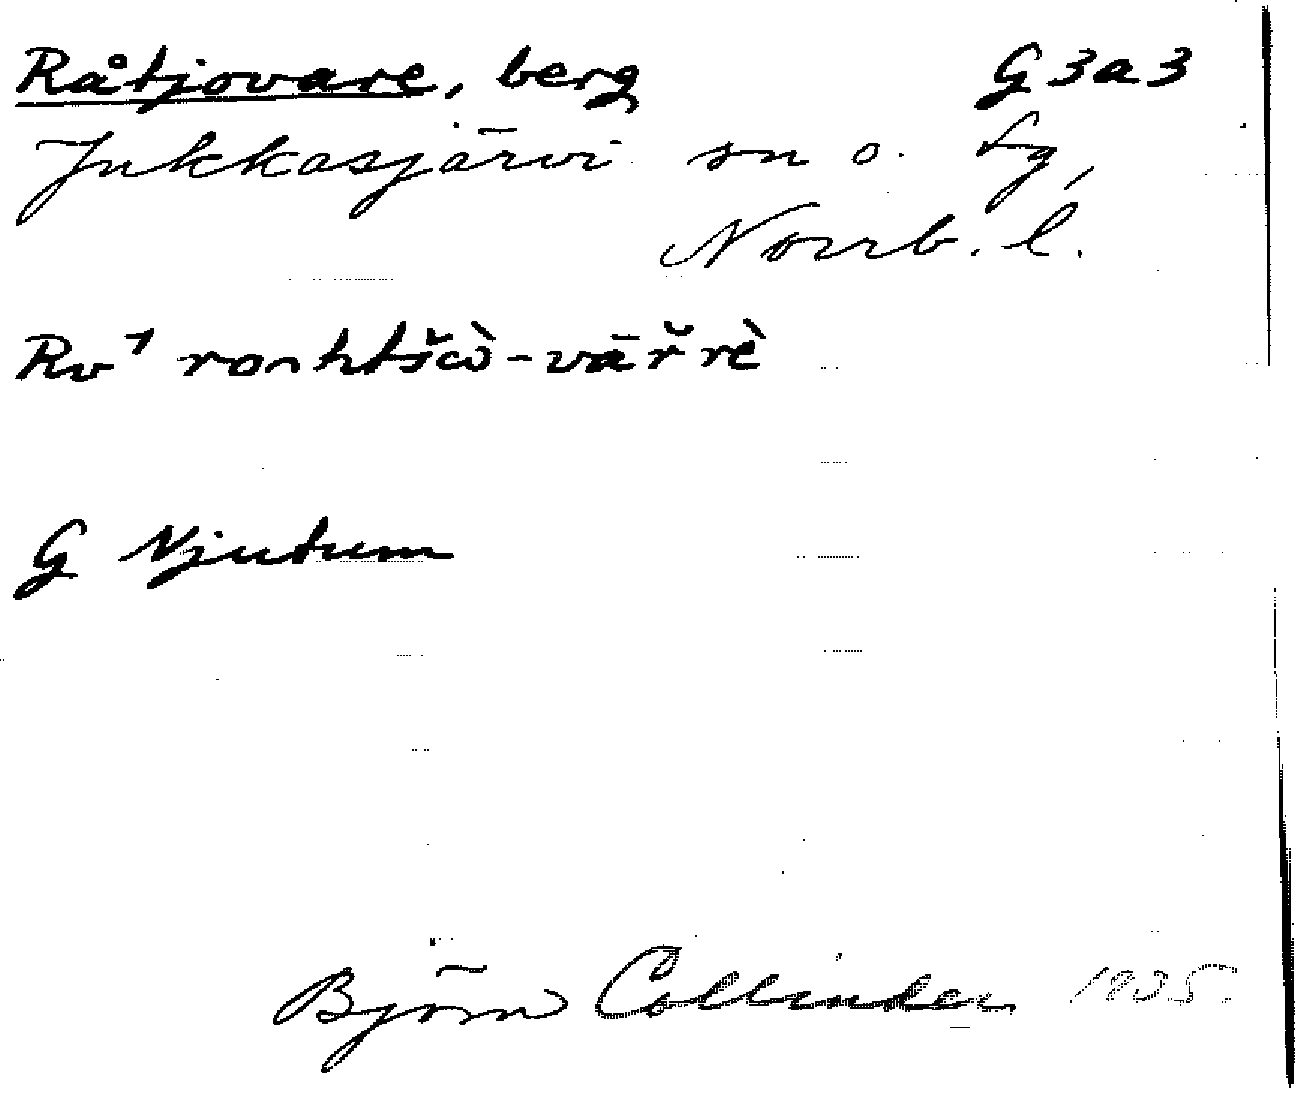 Råtjovare, berg G3a3
Jukkasjärvi sn o. tg,
Norrb. l.
Rv1 ronhtšὼ-vāřrè
G Njutum
Björn Collinder 1935.